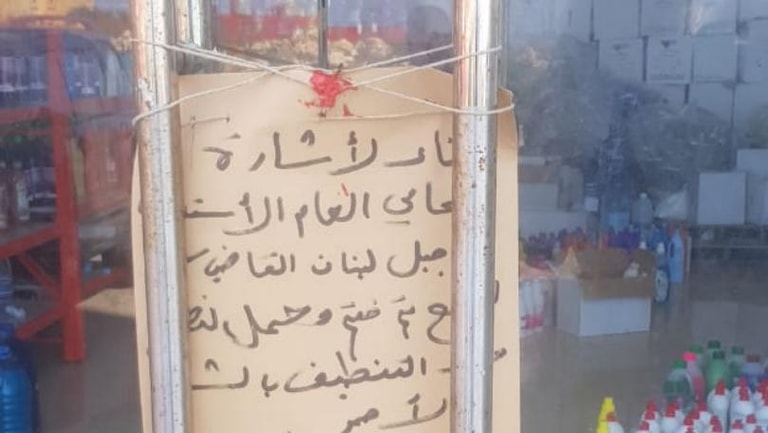 ناء لأشارة
حامي العام الأست
جبل لبنان القاضي
ح تم ختم
التنظيف بالش
الأحمر